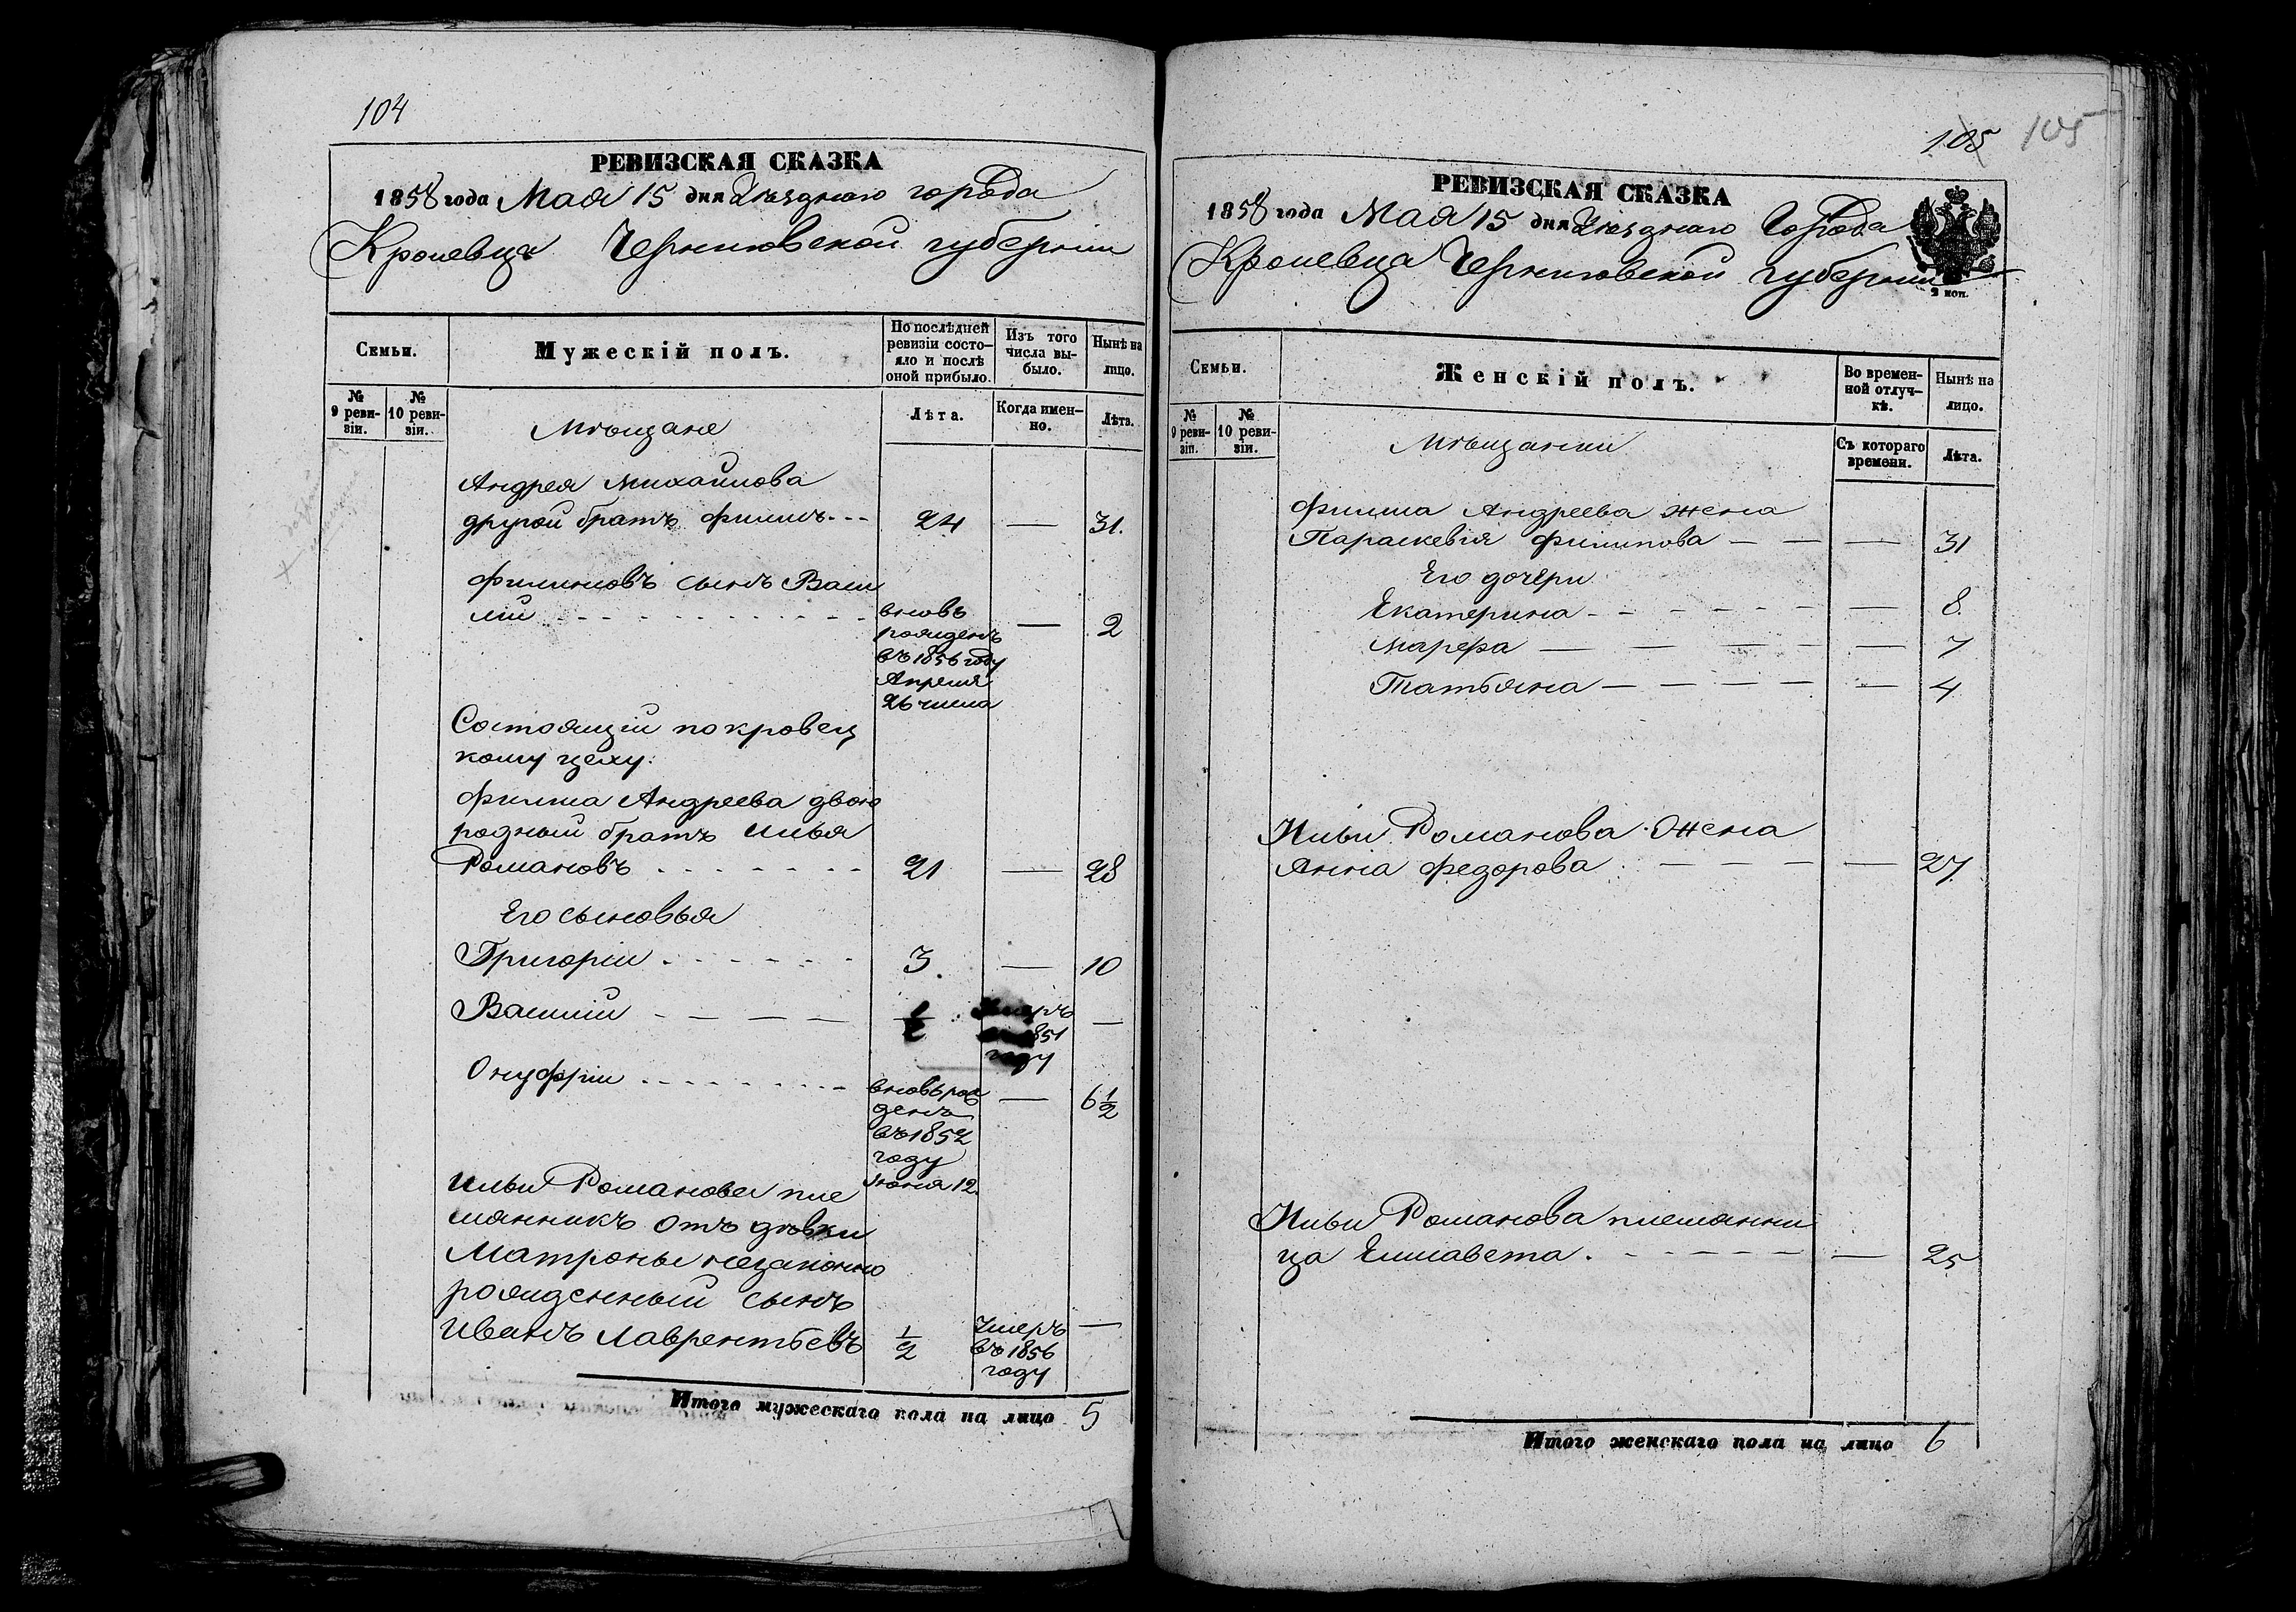 104
РЕВИЗСКАЯ СКАЗКА
1858 года Мая 15 дня Уѣзднаго города
Кролевца Черниговской губерніи
Семьи.
Мужескій полъ.
По послѣдней ревизіи состо-
яло и послѣ
оной прибыло.
Изъ того
числа вы-
было.
Нынѣ на
лицо.
№
9 реви-
зіи.
№
10 реви-
зіи.
Мѣщане
Лѣта.
Когда имен-
но.
Лѣта.
Андрея Михайлова
другой братъ Филипъ - - - 24 — 31.
Филиповъ сынъ Васи
лій - - - вновь
рожденъ
въ 1856 году
Апреля
26 числа — 2
Состоящій по кровец
кому цеху:
Филипа Андреева двою
родный братъ Илья
Романовъ - - - 21 — 28
Его сыновья
Григорій - - - 3. — 10
Василій — — — 1/2 Умеръ
1851
году —
Онуфрій - - - вновь рож
денъ
въ 1852
году
Июня 12. — 6 1/2
Ильи Романова пле
мянникъ отъ дѣвки
Матроны незаконно
рожденный сынъ
Иванъ Лаврентьевъ 1/2 Умеръ
въ 1856
году —
Итого мужескаго пола на лицо 5
105 105
РЕВИЗСКАЯ СКАЗКА
1858 года Мая 15 дня Уѣзднаго Города
Кролевца Черниговской губерніи
2 коп.
Семьи.
Женскій полъ.
Во времен-
ной отлуч-
кѣ.
Нынѣ на
лицо.
№
9 реви-
зіи.
№
10 реви-
зіи.
Мѣщанки
Съ котораго
времени.
Лѣта.
Филипа Андреева жена
Параскевія Филипова — — — 31
Его дочери
Екатерина - - - — 8.
Марфа — — — — 7
Татьяна — — — — 4
Ильи Романова жена
Анна Федорова — — — — 27
Ильи Романова племянни
ца Елисавета. - - - — 25
Итого женскаго пола на лицо 6